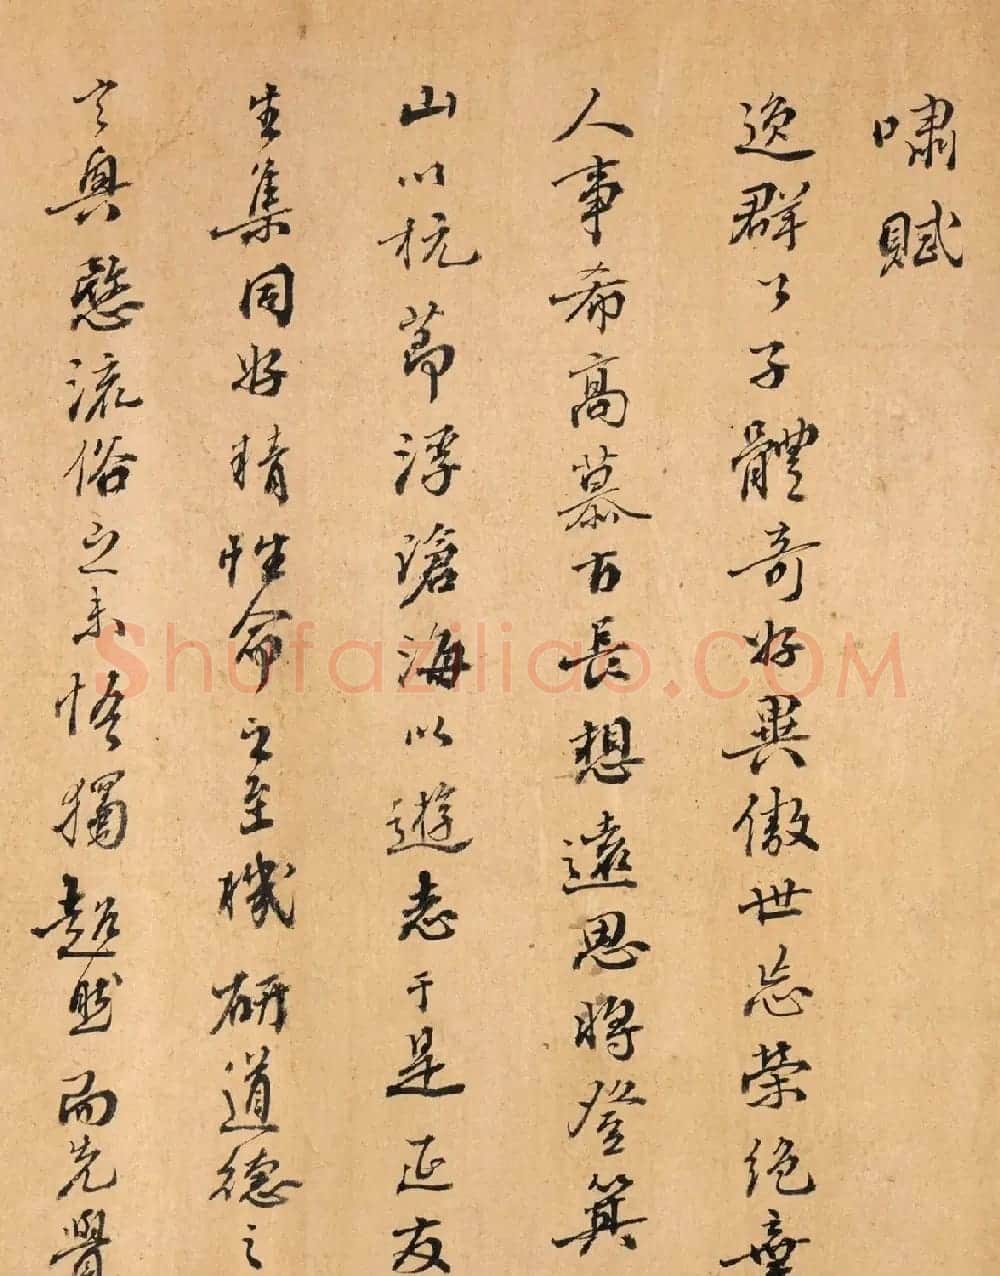 嘯賦
逸群公子體奇好異傲世忘榮絕棄
人事希高慕古長想遠思將登箕
山以抗節浮滄海以遊志于是延友
生集同好精性命之至機研道德之
玄奧愍流俗之未悟獨超然而先覺
Shufaziliao.COM